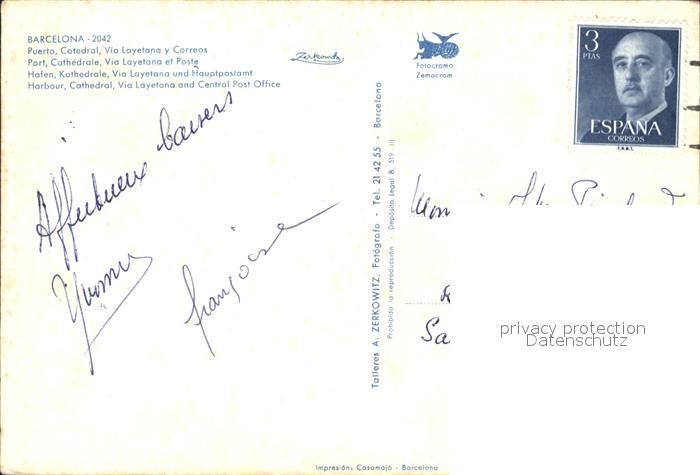 BARCELONA - 2042
Puerto, Catedral, Vía Layetana y Correos
Port, Cathédrale, Via Layetana et Poste
Hafen, Kathedrale, Via Layetana und Hauptpostamt
Harbour, Cathedral, Via Layetana and Central Post Office
Zerkowitz
Fotocromo
Zemacrom
3
PTAS
ESPAÑA
CORREOS
F.N.M.T.
Affectueux baisers
Yvonne
françoise
Talleres A. ZERKOWITZ, Fotógrafo - Tel. 21 42 55 - Barcelona
Prohibida la reproducción - Depósito Legal B. 519 - III
Sa
privacy protection
Datenschutz
Impresión: Casamajó - Barcelona